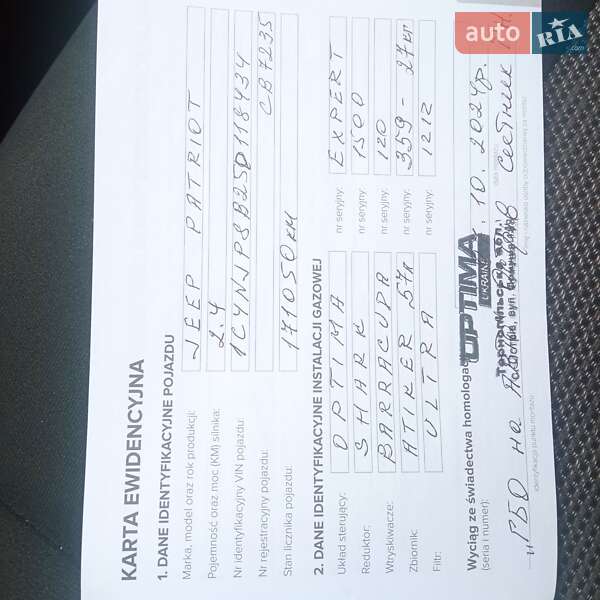 auto RIA .com
KARTA EWIDENCYJNA
1. DANE IDENTYFIKACYJNE POJAZDU
Marka, model oraz rok produkcji: JEEP PATRIOT
Pojemność oraz moc (KM) silnika: 2.4
Nr identyfikacyjny VIN pojazdu: 1C4NJPSB2 118434
Nr rejestracyjny pojazdu: CB7235
Stan licznika pojazdu: 171050 км
2. DANE IDENTYFIKACYJNE INSTALACJI GAZOWEJ
Układ sterujący: OPTIMA nr seryjny: EXPERT
Reduktor: SHARK nr seryjny: 1500
Wtryskiwacze: BARRACUDA nr seryjny: 120
Zbiornik: ATIKER 57л nr seryjny: 359-
Filtr: ULTRA nr seryjny: 1212
Wyciąg ze świadectwa homologacji
(seria i numer):
OPTIMA
UKRAINE
10.2024р.
Тернопільська обл.
ГБО на
identyfikacja punktu montażu